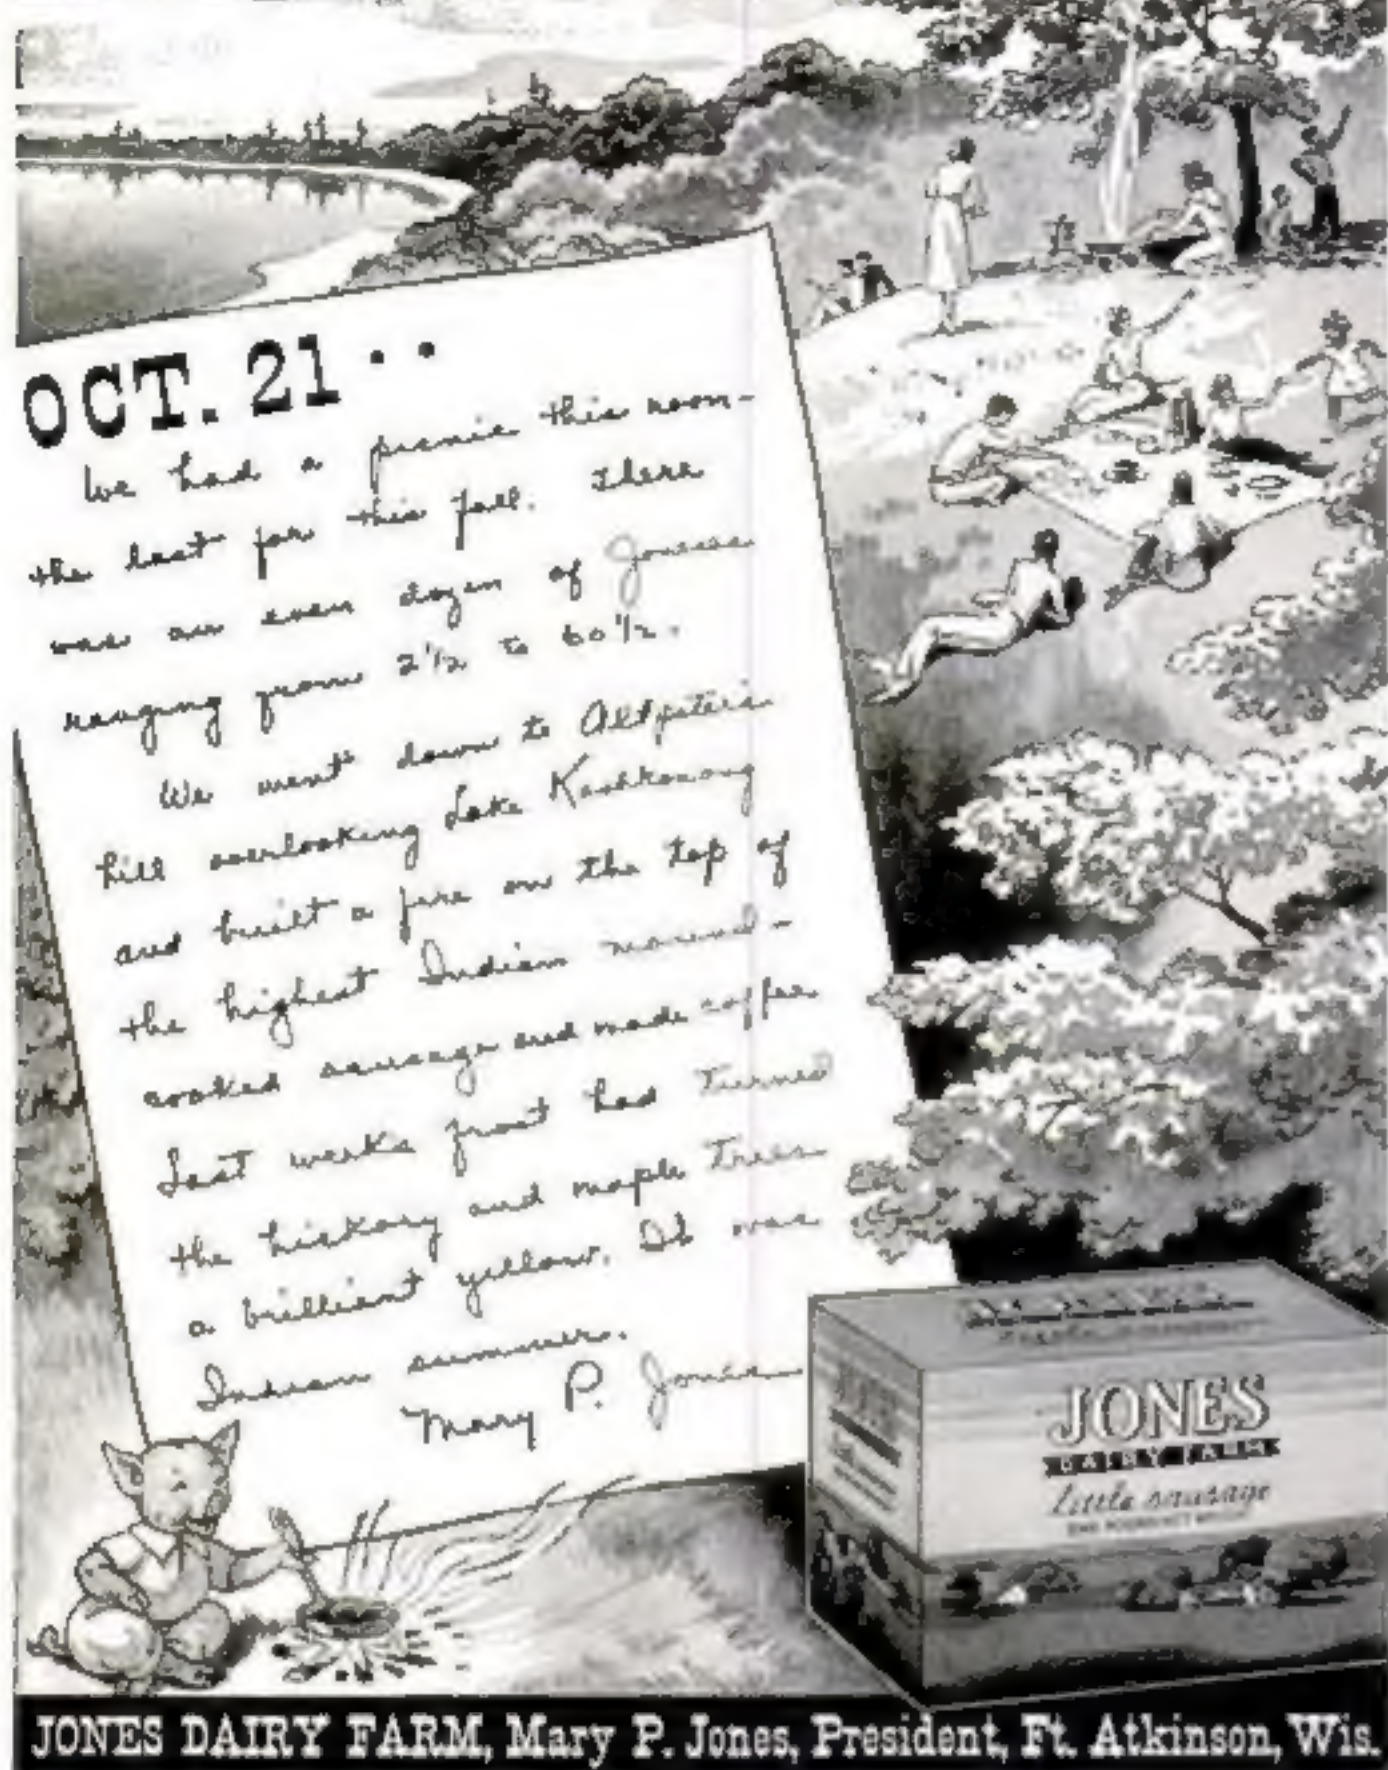 OCT. 21 . .
We had a picnic this noon-
the last for this fall. There
was an even dozen of Joneses
ranging from 2 1/2 to 60 1/2.
We went down to Altpeter's
hill overlooking Lake Koshkonong
and built a fire on the top of
the highest Indian mound-
cooked sausage and made coffee
Last weeks frost had turned
the hickory and maple trees
a brilliant yellow. It was
Indian summer.
Mary P. Jones
JONES
DAIRY FARM
Little sausage
JONES DAIRY FARM, Mary P. Jones, President, Ft. Atkinson, Wis.